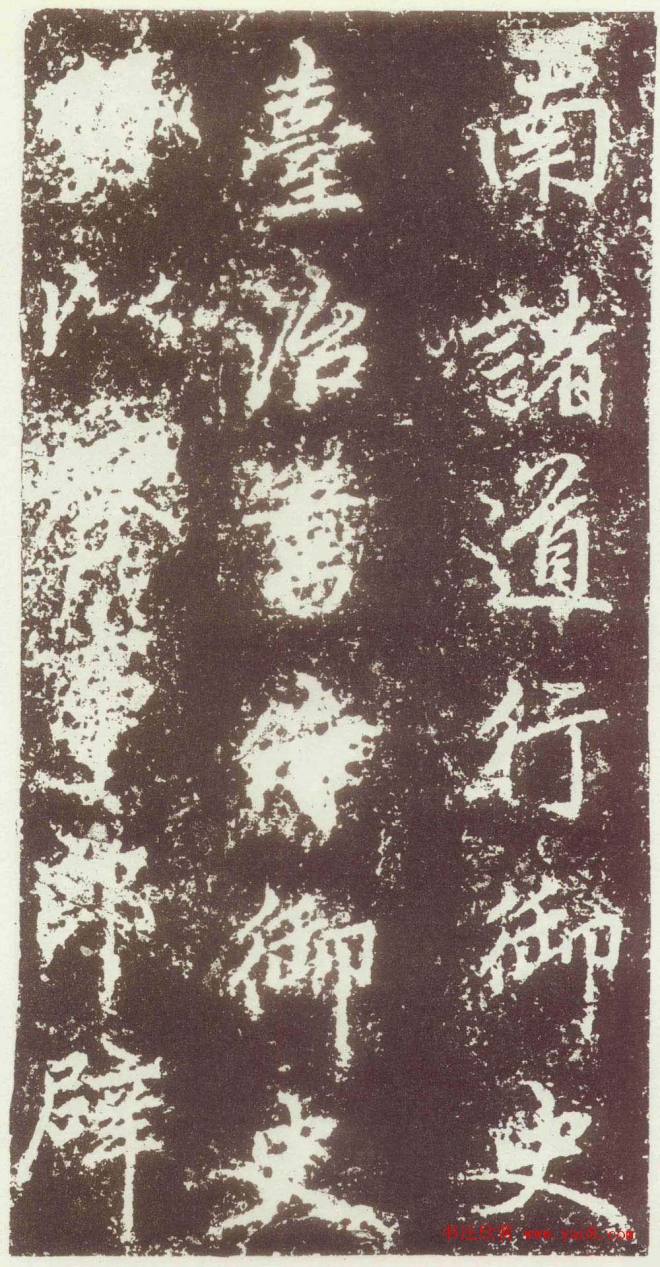 南諸道行御史
臺治書侍御史
以御辟
书法欣赏 www.yac8.com